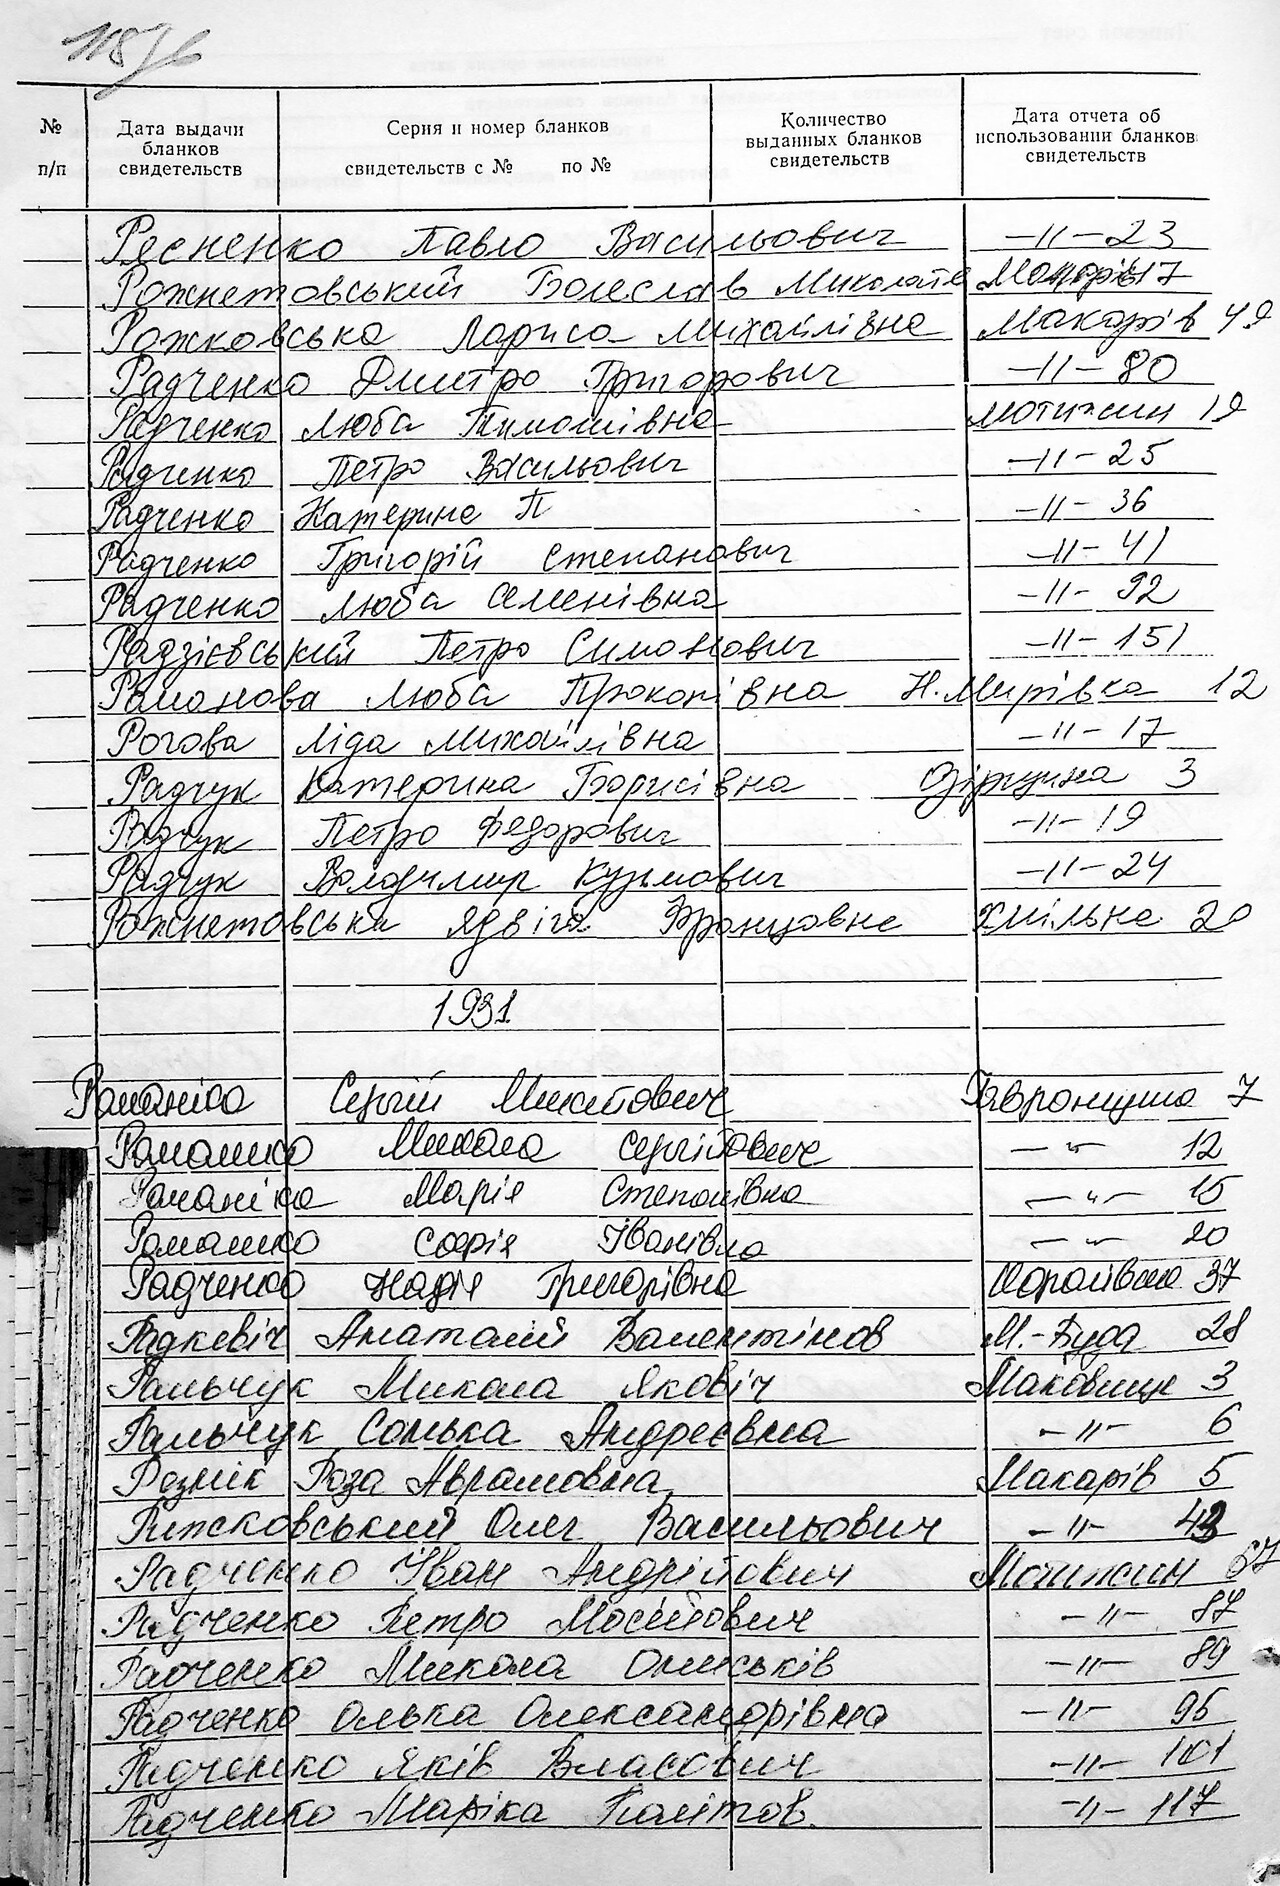 № п/п
Дата выдачи бланков свидетельств
Серия и номер бланков свидетельств с № по №
Количество выданных бланков свидетельств
Дата отчета об использовании бланков свидетельств
Рясненко Павло Васильович -II- 23
Рожнетовський Болеслав Миколаїв Макарів 17
Рожковська Лариса Михайлівна Макарів 49
Радченко Дмитро Григорович -II- 80
Радченко Люба Тимошівна Мотижин 19
Радченко Петро Васильович -II- 25
Радченко Катерина П -II- 36
Радченко Григорій Степанович -II- 41
Радченко Люба Семенівна -II- 92
Радзієвський Петро Симонович -II- 151
Романова Люба Прокопівна Н. Мирівка 12
Рогова Ліда Михайлівна -II- 17
Радчук Катерина Борисівна 3
Радчук Петро Федорович -II- 19
Радчук Володимир Кузьмович -II- 24
Рожнетовська Ядвіга Францовна Хмільна 20
1931
Сергій Микитович Гавронщина 7
Романко Микола Сергійович -"- 12
Марія Степанівна -"- 15
Романко Софія Іванівна -"- 20
Радченко Надія Григорівна 37
Радкевіч Анатолій Валентінов М.-Буда 28
Ральчук Микола Яковіч Маковище 3
Ральчук Сонька Андреєвна -"- 6
Резнік Роза Аврамовна Макарів 5
Рижковський Олег Васильович -"- 43
Радченко Іван Андрійович Мотижин 67
Радченко Петро Мосійович -"- 87
Радченко Микола Ониськів -"- 89
Радченко Олька Олександрівна -"- 95
Радченко Яків Власович -"- 101
Радченко Маріка Політов. -"- 117